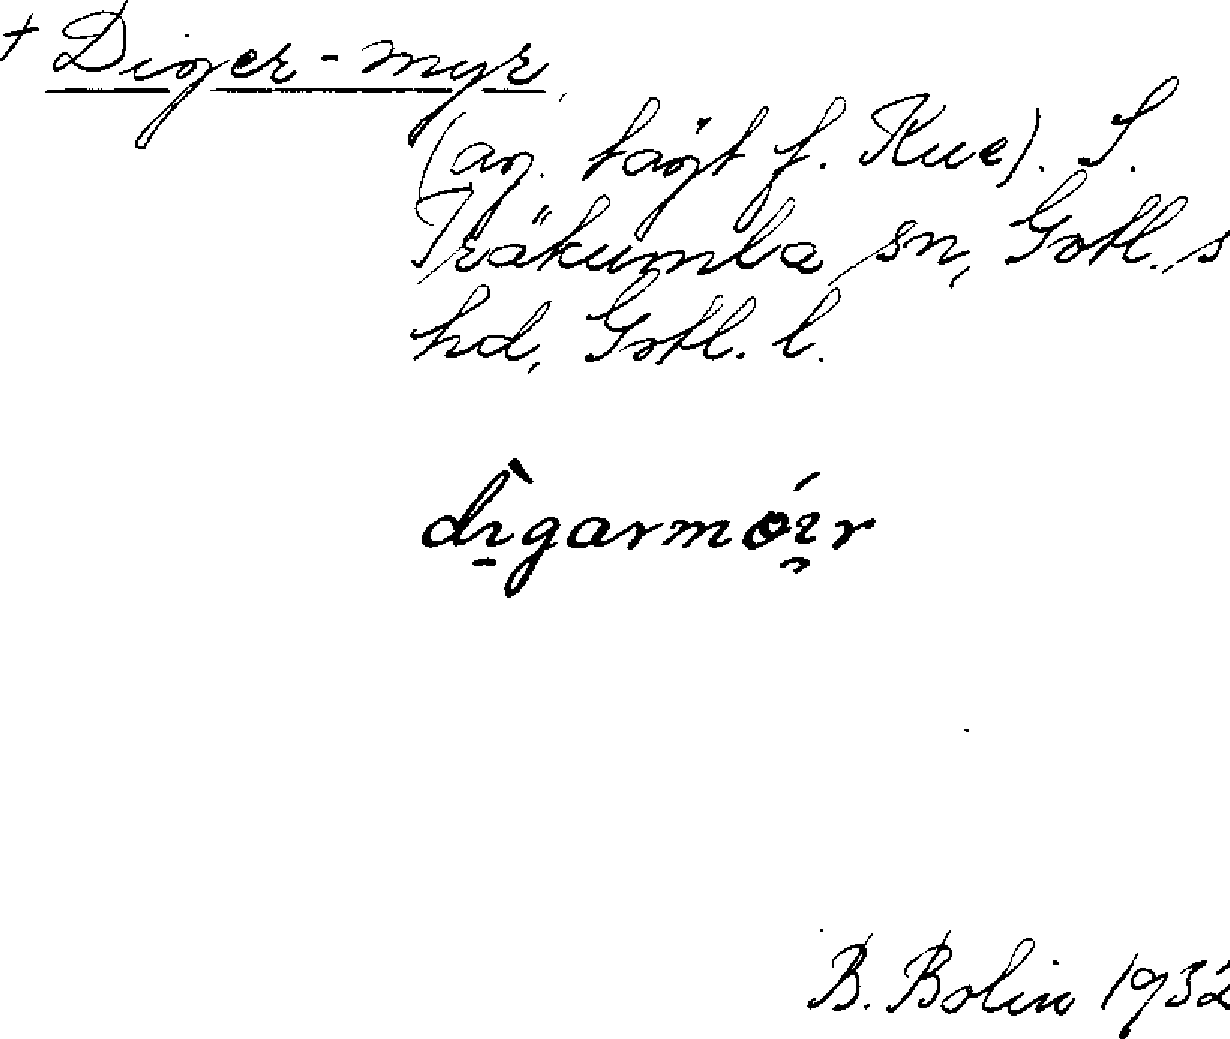 † Diger-myr
(äg. högt f. Kue). I.
Träkumla sn, Gotl. s
hd, Gotl. l.
dìgarmóir
B. Bolin 1932